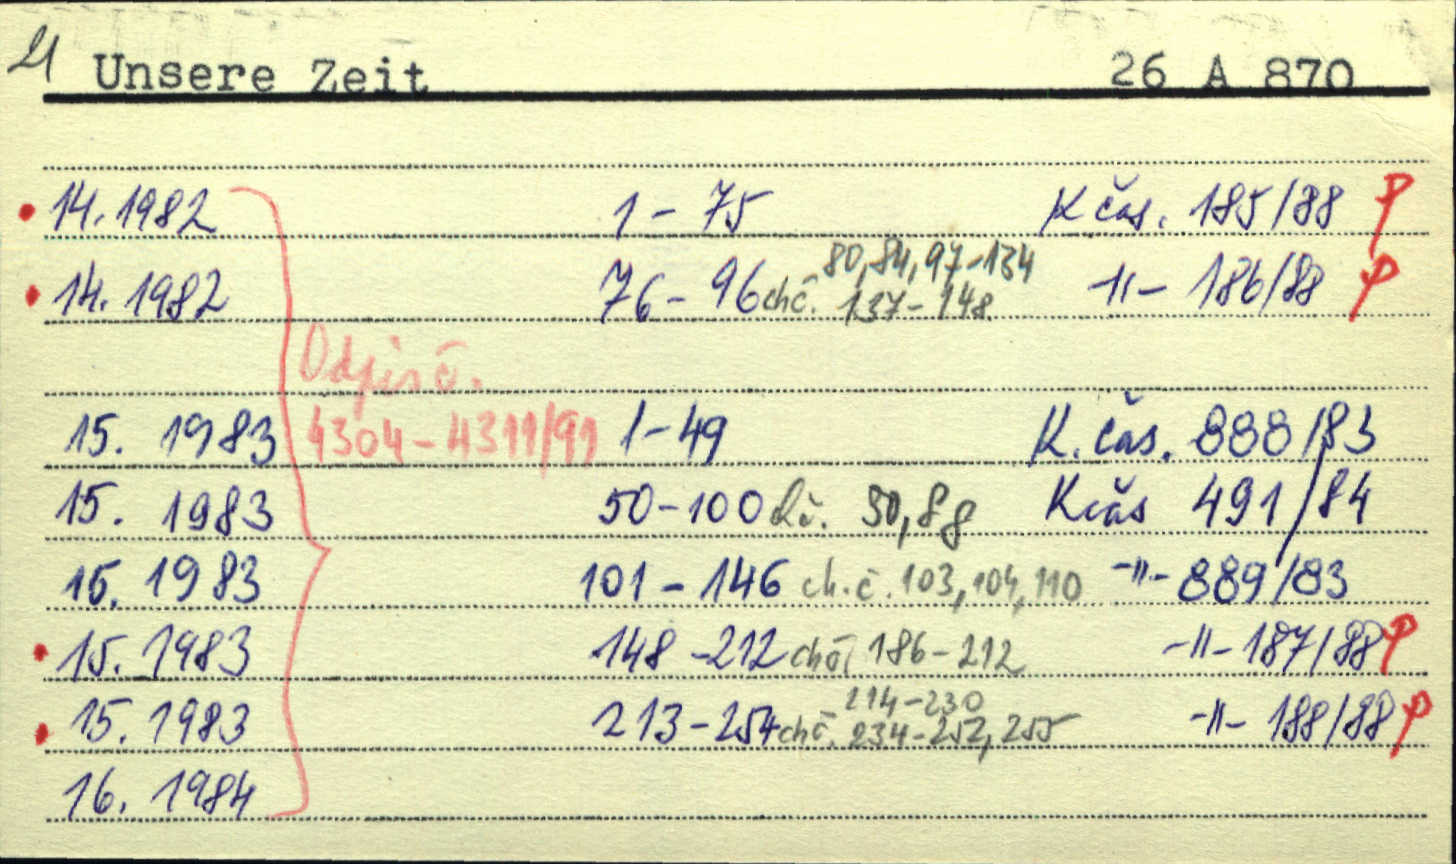 Unsere Zeit 26 A 870
14. 1982 1 - 75 K čas. 185/88 P
80, 84, 97-134
14. 1982 76 - 96 chč. 137-148 -11- 186/88 P
Odpis č.
15. 1983 4304-4311/91 1-49 K. čas. 888/83
15. 1983 50-100 50, 89 Kčas 491/84
15. 1983 101-146 ch.č. 103, 104, 110 -11- 889/83
15. 1983 148-212 chč 186-212 -11- 187/88 P
214-230
15. 1983 213-254 chč. 234-252, 255 -11- 188/88 P
16. 1984